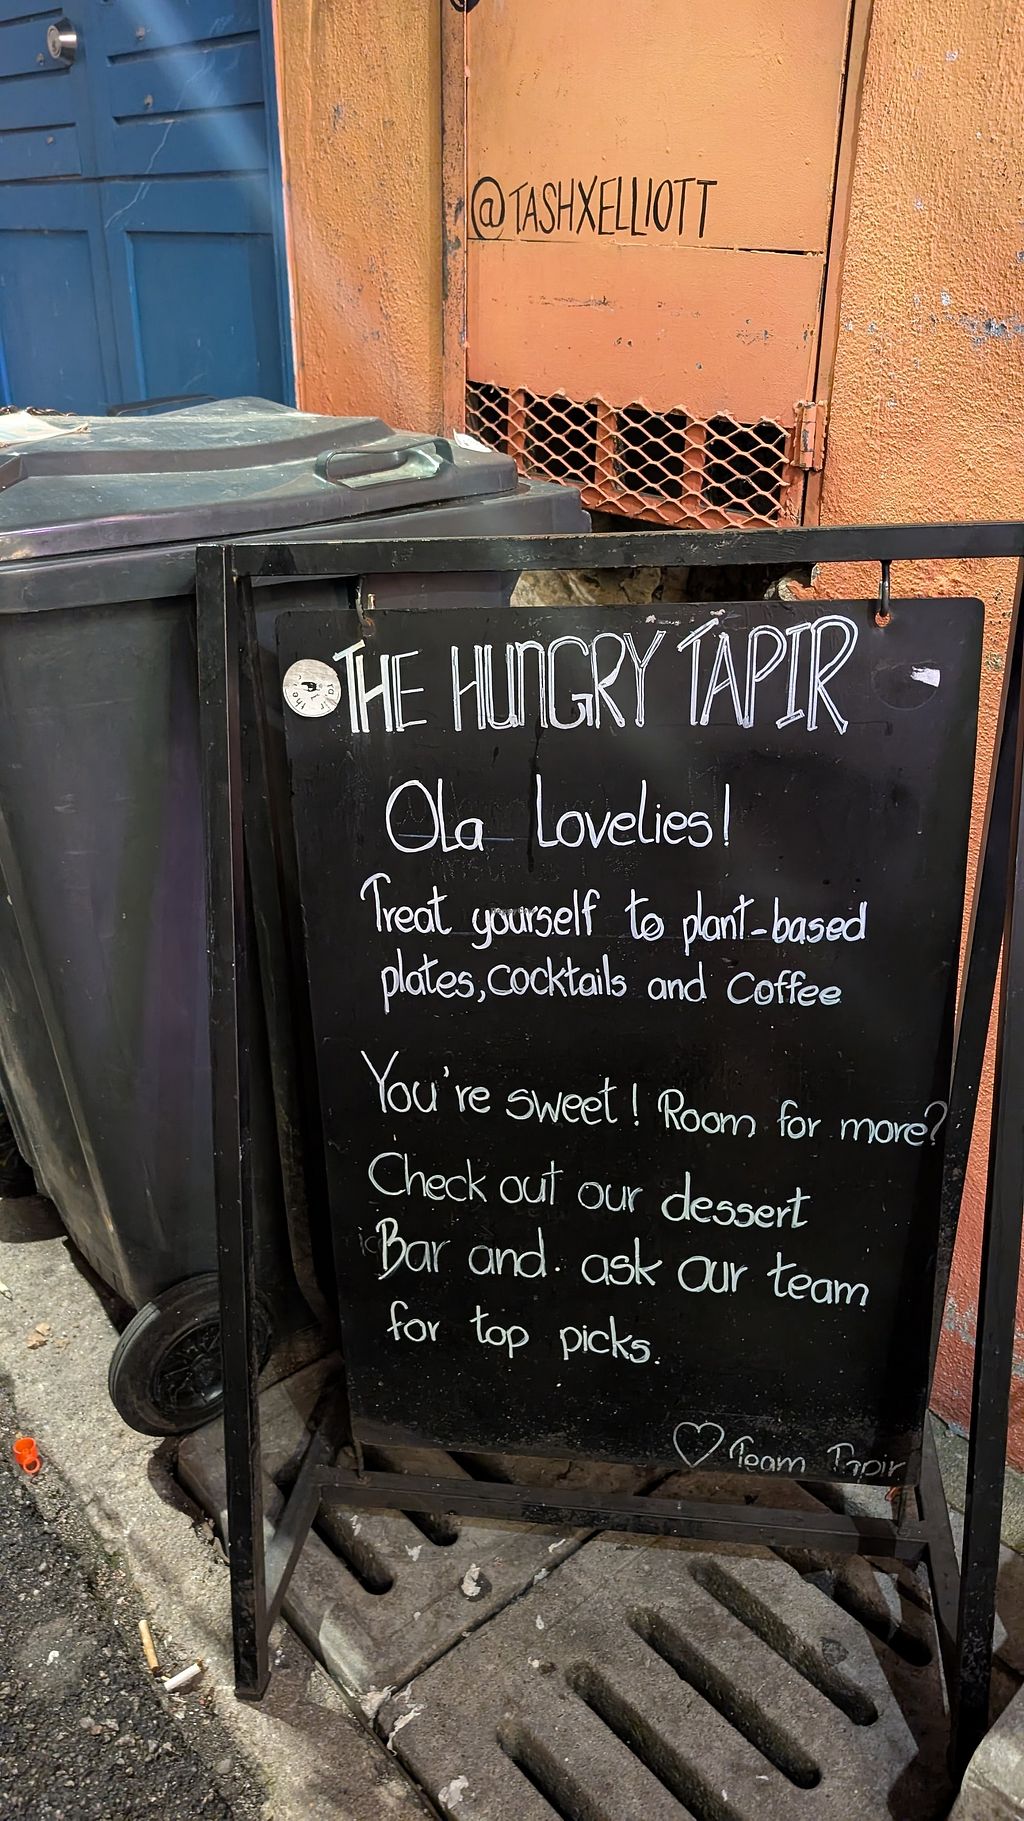 @TASHXELLIOTT
THE HUNGRY TAPIR
Ola Lovelies!
Treat yourself to plant-based
plates, cocktails and Coffee
You're sweet! Room for more?
Check out our dessert
Bar and. ask our team
for top picks.
Team Tapir